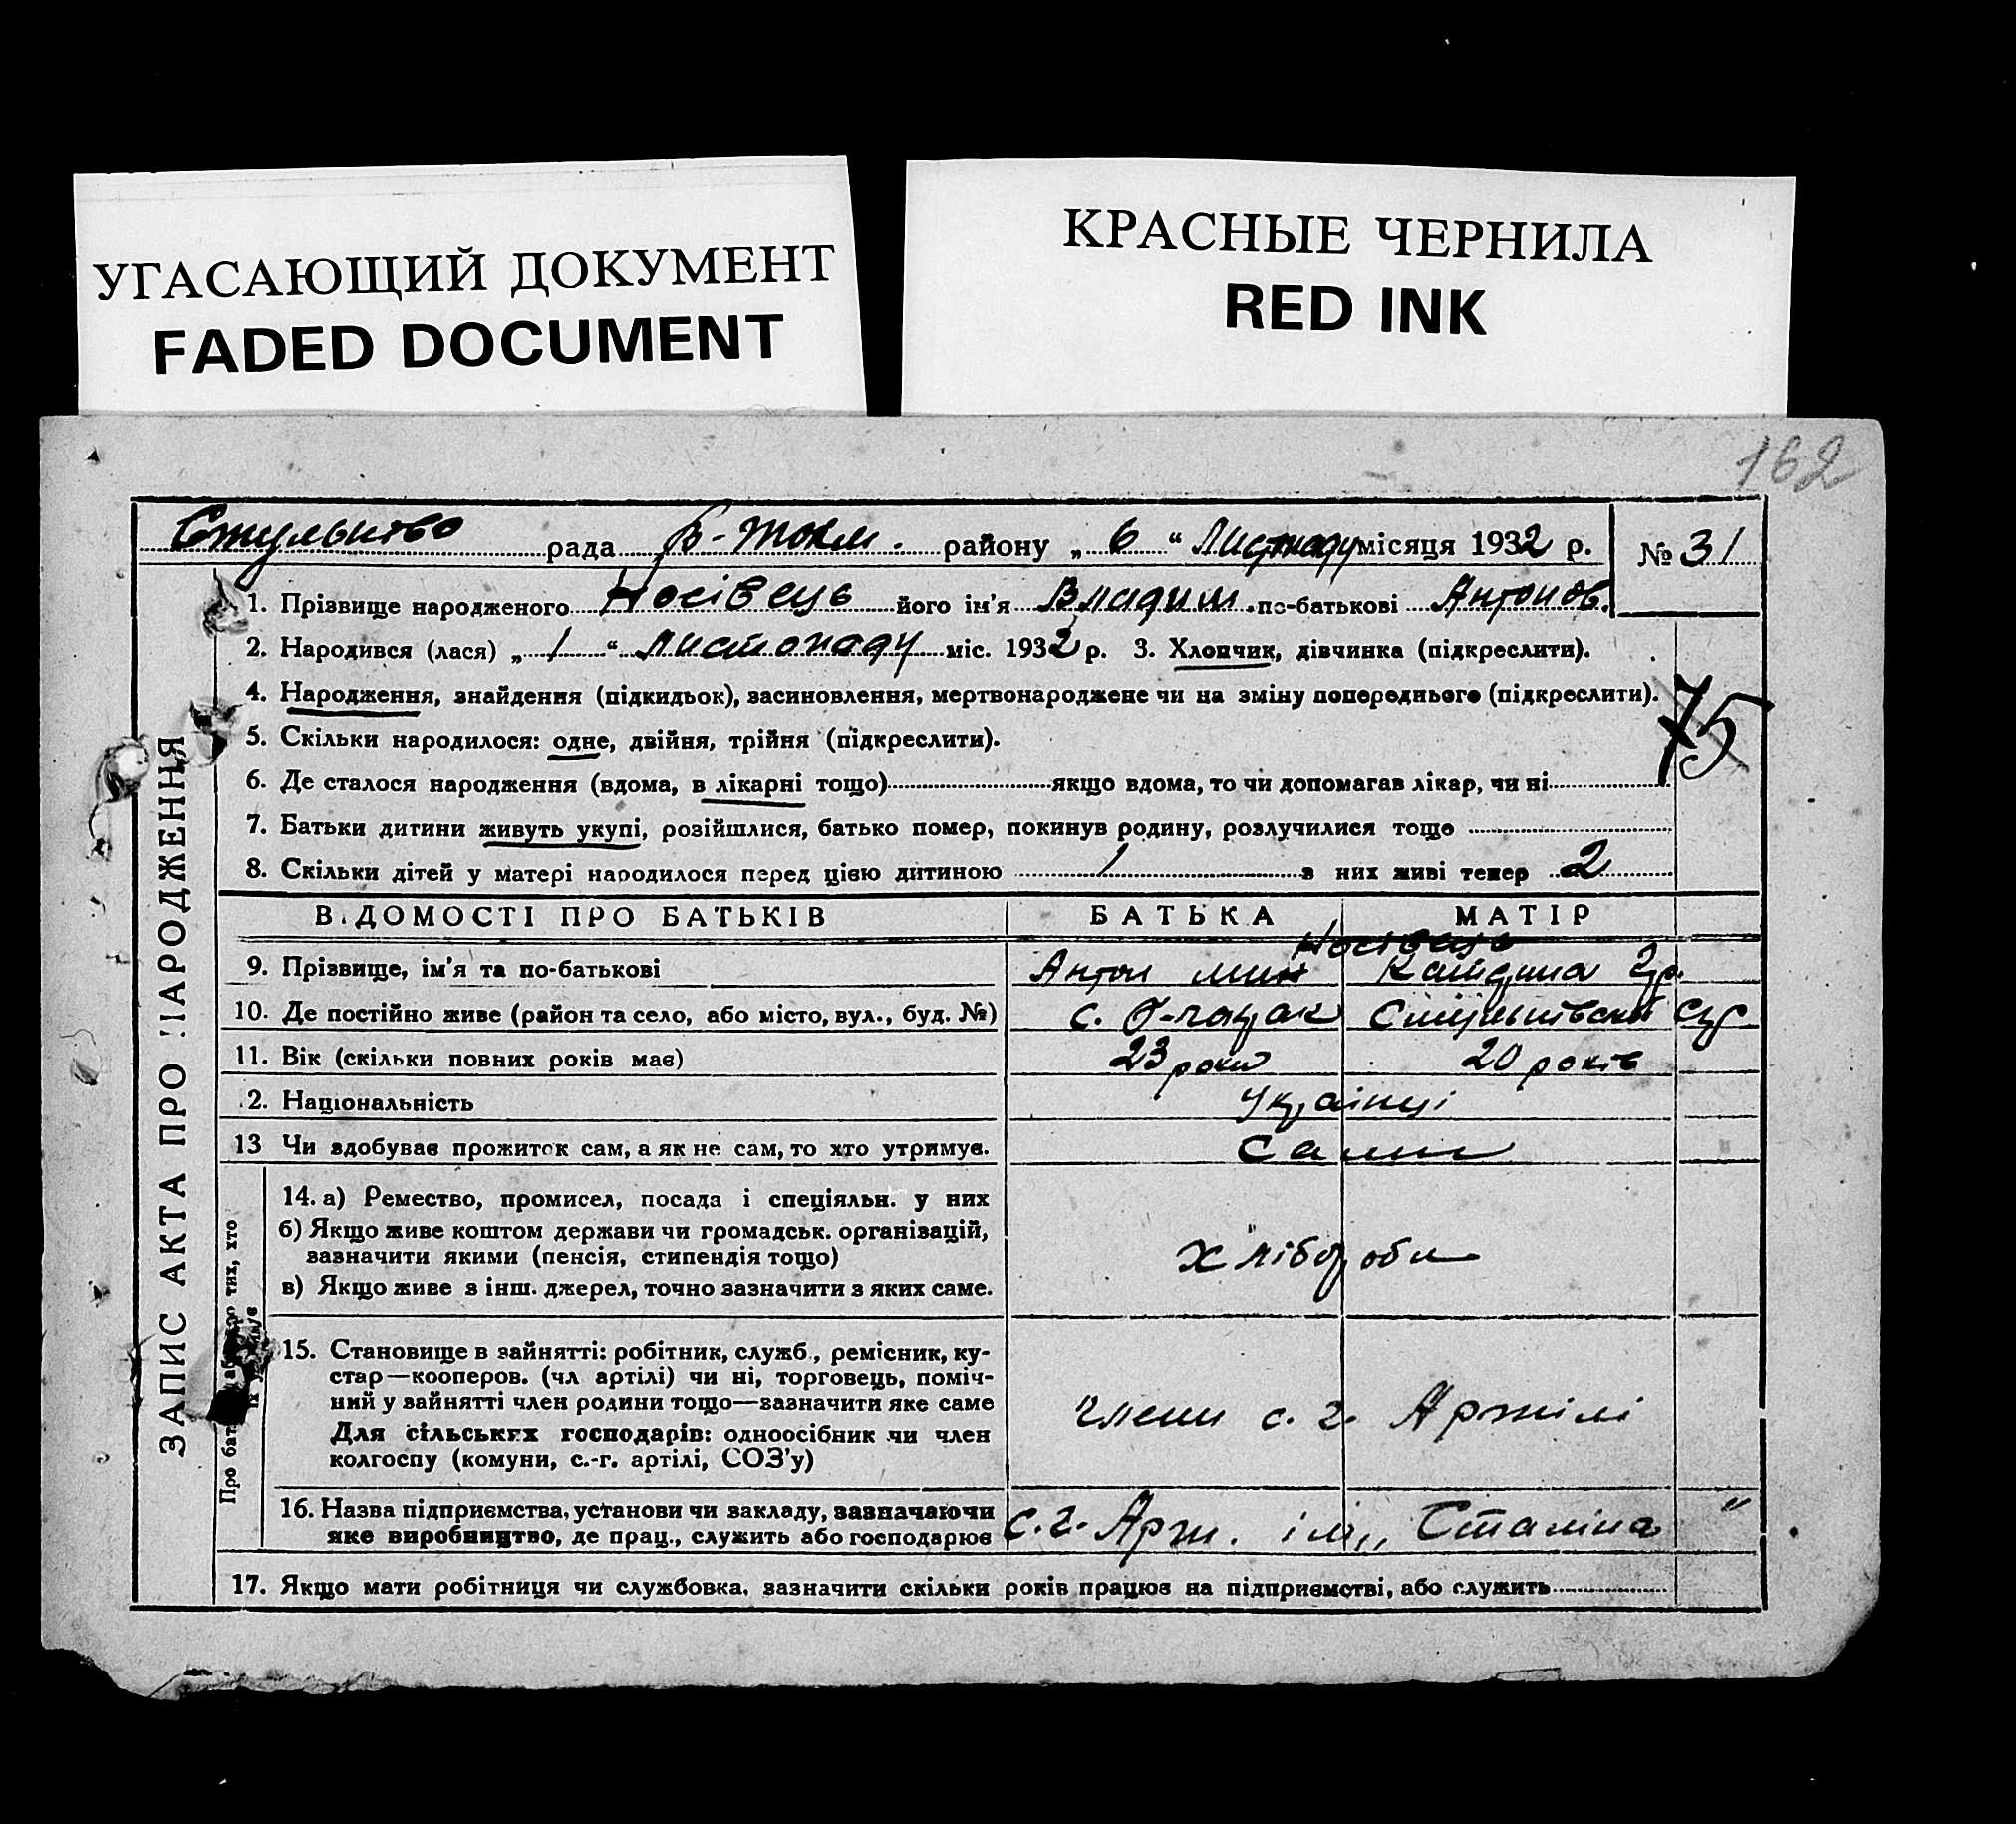 УГАСАЮЩИЙ ДОКУМЕНТ
FADED DOCUMENT
КРАСНЫЕ ЧЕРНИЛА
RED INK
162
рада Б-Токм. району „ 6 “ Листопаду місяця 1932 р. № 31
1. Прізвище народженого Носівець його ім'я Владим. по-батькові Антонов.
2. Народився (лася) „ 1 “ листопаду міс. 1932 р. 3. Хлопчик, дівчинка (підкреслити).
4. Народження, знайдення (підкидьок), засиновлення, мертвонароджене чи на зміну попереднього (підкреслити).
75
5. Скільки народилося: одне, двійня, трійня (підкреслити).
6. Де сталося народження (вдома, в лікарні тощо) якщо вдома, то чи допомагав лікар, чи ні
7. Батьки дитини живуть укупі, розійшлися, батько помер, покинув родину, розлучилися тощо
8. Скільки дітей у матері народилося перед цією дитиною 1 в них живі тепер 2
ЗАПИС АКТА ПРО НАРОДЖЕННЯ
ВІДОМОСТІ ПРО БАТЬКІВ БАТЬКА МАТІР
Носівець
9. Прізвище, ім'я та по-батькові Антон мин
10. Де постійно живе (район та село, або місто, вул., буд. №) с.
11. Вік (скільки повних років має) 23 роки 20 років
2. Національність Українці
13 Чи здобуває прожиток сам, а як не сам, то хто утримує. Сами
14. а) Ремество, промисел, посада і спеціяльн. у них
б) Якщо живе коштом держави чи громадськ. організацій,
зазначити якими (пенсія, стипендія тощо)
Хлібороби
в) Якщо живе з інш. джерел, точно зазначити з яких саме.
15. Становище в зайнятті: робітник, служб., ремісник, ку-
стар—кооперов. (чл артілі) чи ні, торговець, поміч-
ний у зайнятті член родини тощо—зазначити яке саме
члени с. г. Артілі
Для сільських господарів: одноосібник чи член
колгоспу (комуни, с.-г. артілі, СОЗ'у)
16. Назва підприємства, установи чи закладу, зазначаючи
яке виробництво, де прац., служить або господарює С. г. Арт. ім „ Сталіна “
17. Якщо мати робітниця чи службовка, зазначити скільки років працює на підприємстві, або служить